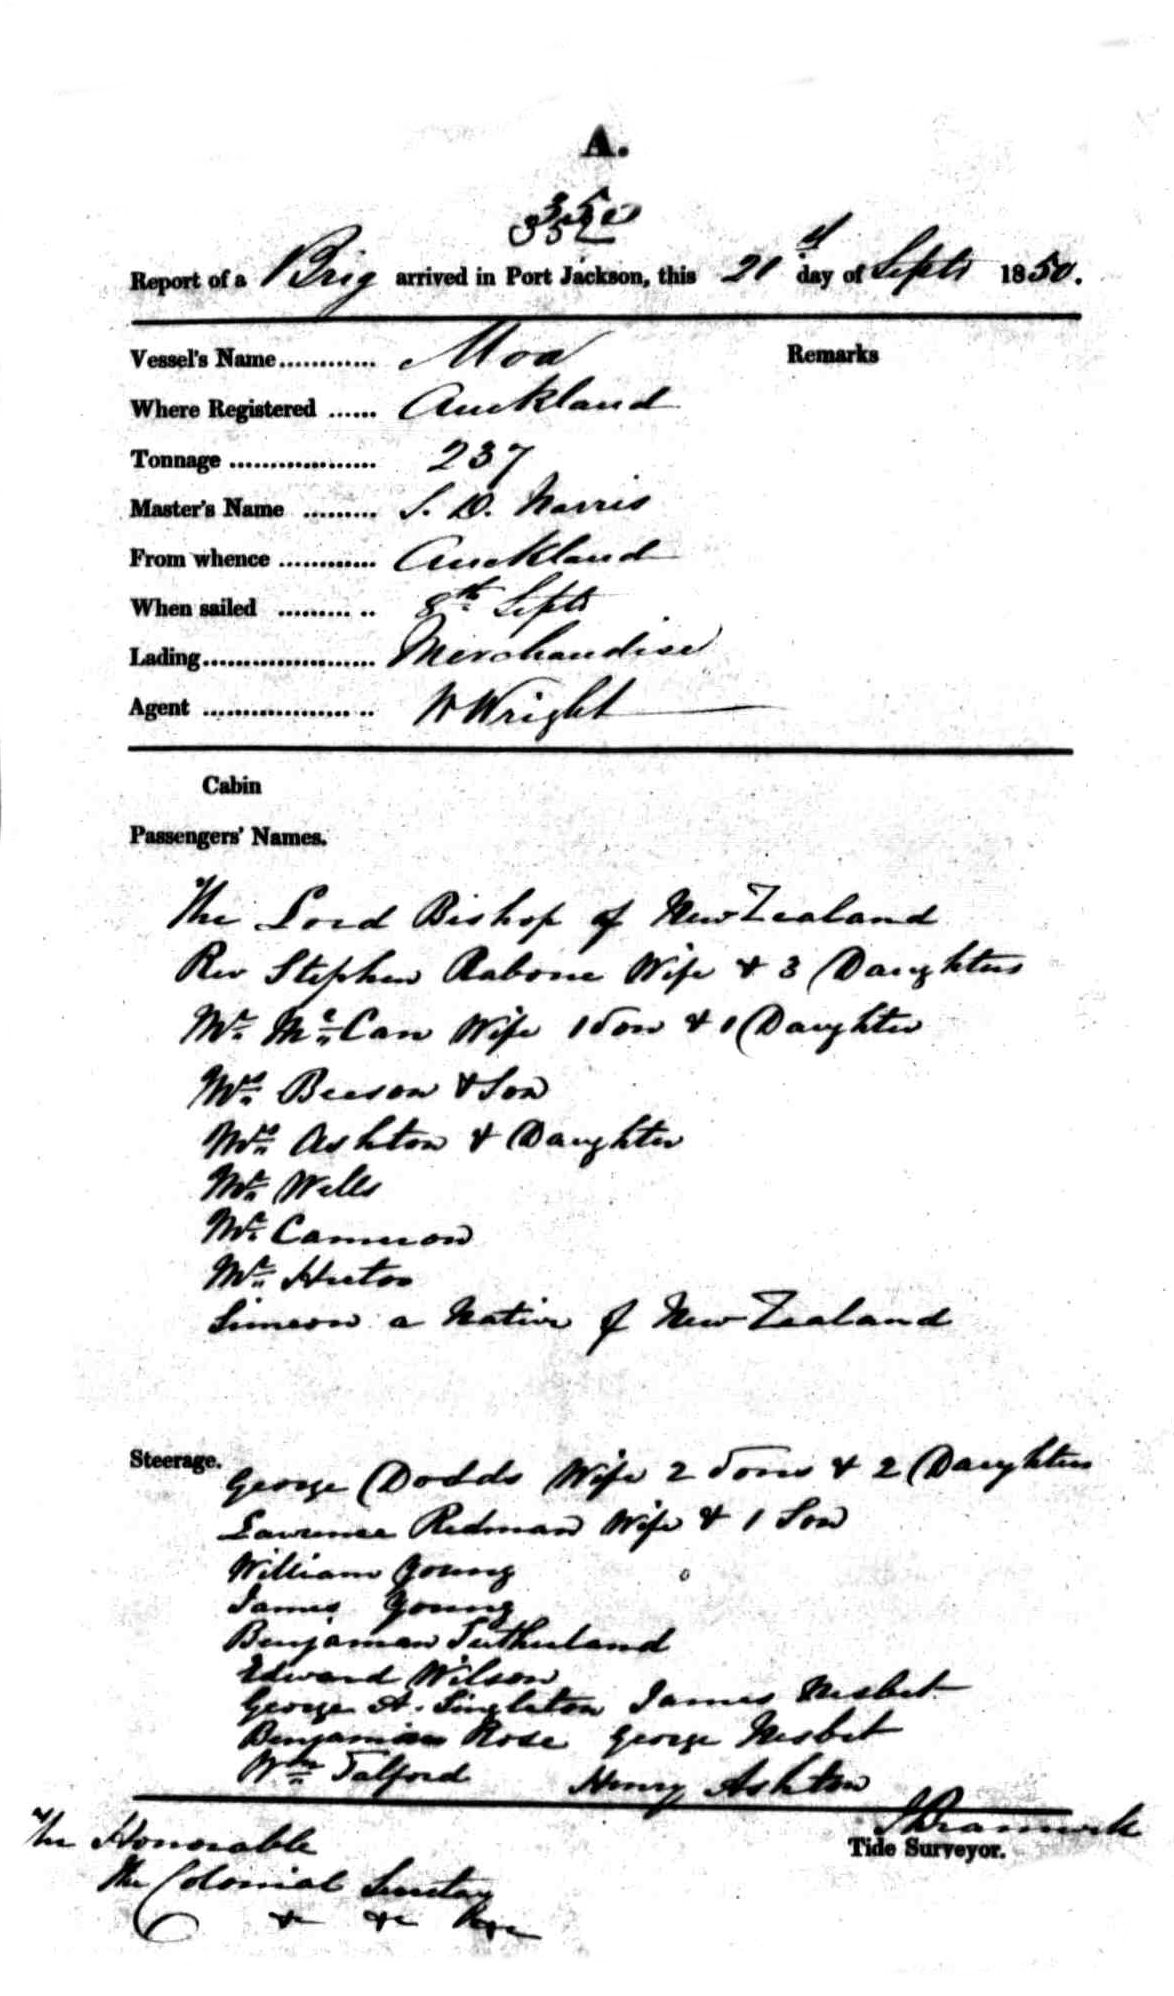 A.
350
352
Report of a Brig arrived in Port Jackson, this 21st day of Septr 1850.
Vessel's Name............ Moa Remarks
Where Registered ...... Auckland
Tonnage .................. 237
Master's Name ......... S. D. Norris
From whence ............ Auckland
When sailed ......... .. 8th Septr
Lading..................... Merchandise
Agent .................. .. W Wright
Cabin
Passengers' Names.
The Lord Bishop of New Zealand
Rev Stephen Rabone Wife & 3 Daughters
Mr. Mc.Can Wife 1 Son & 1 Daughter
Mrs. Beeson & Son
Mrs. Ashton & Daughter
Mr. Wells
Mr. Cameron
Mr.
Simeon a Native of New Zealand
Steerage. George Dodds Wife 2 Sons & 2 Daughters
Lawrence Redman Wife & 1 Son
William Young
James Young
Benjaman Sutherland
Edward Wilson
George A. Singleton James Nesbet
Benjaman Rose George Nesbet
Wm Talford Henry Ashton
Tide Surveyor.
The Honorable
The Colonial Secretary
&c &c &c